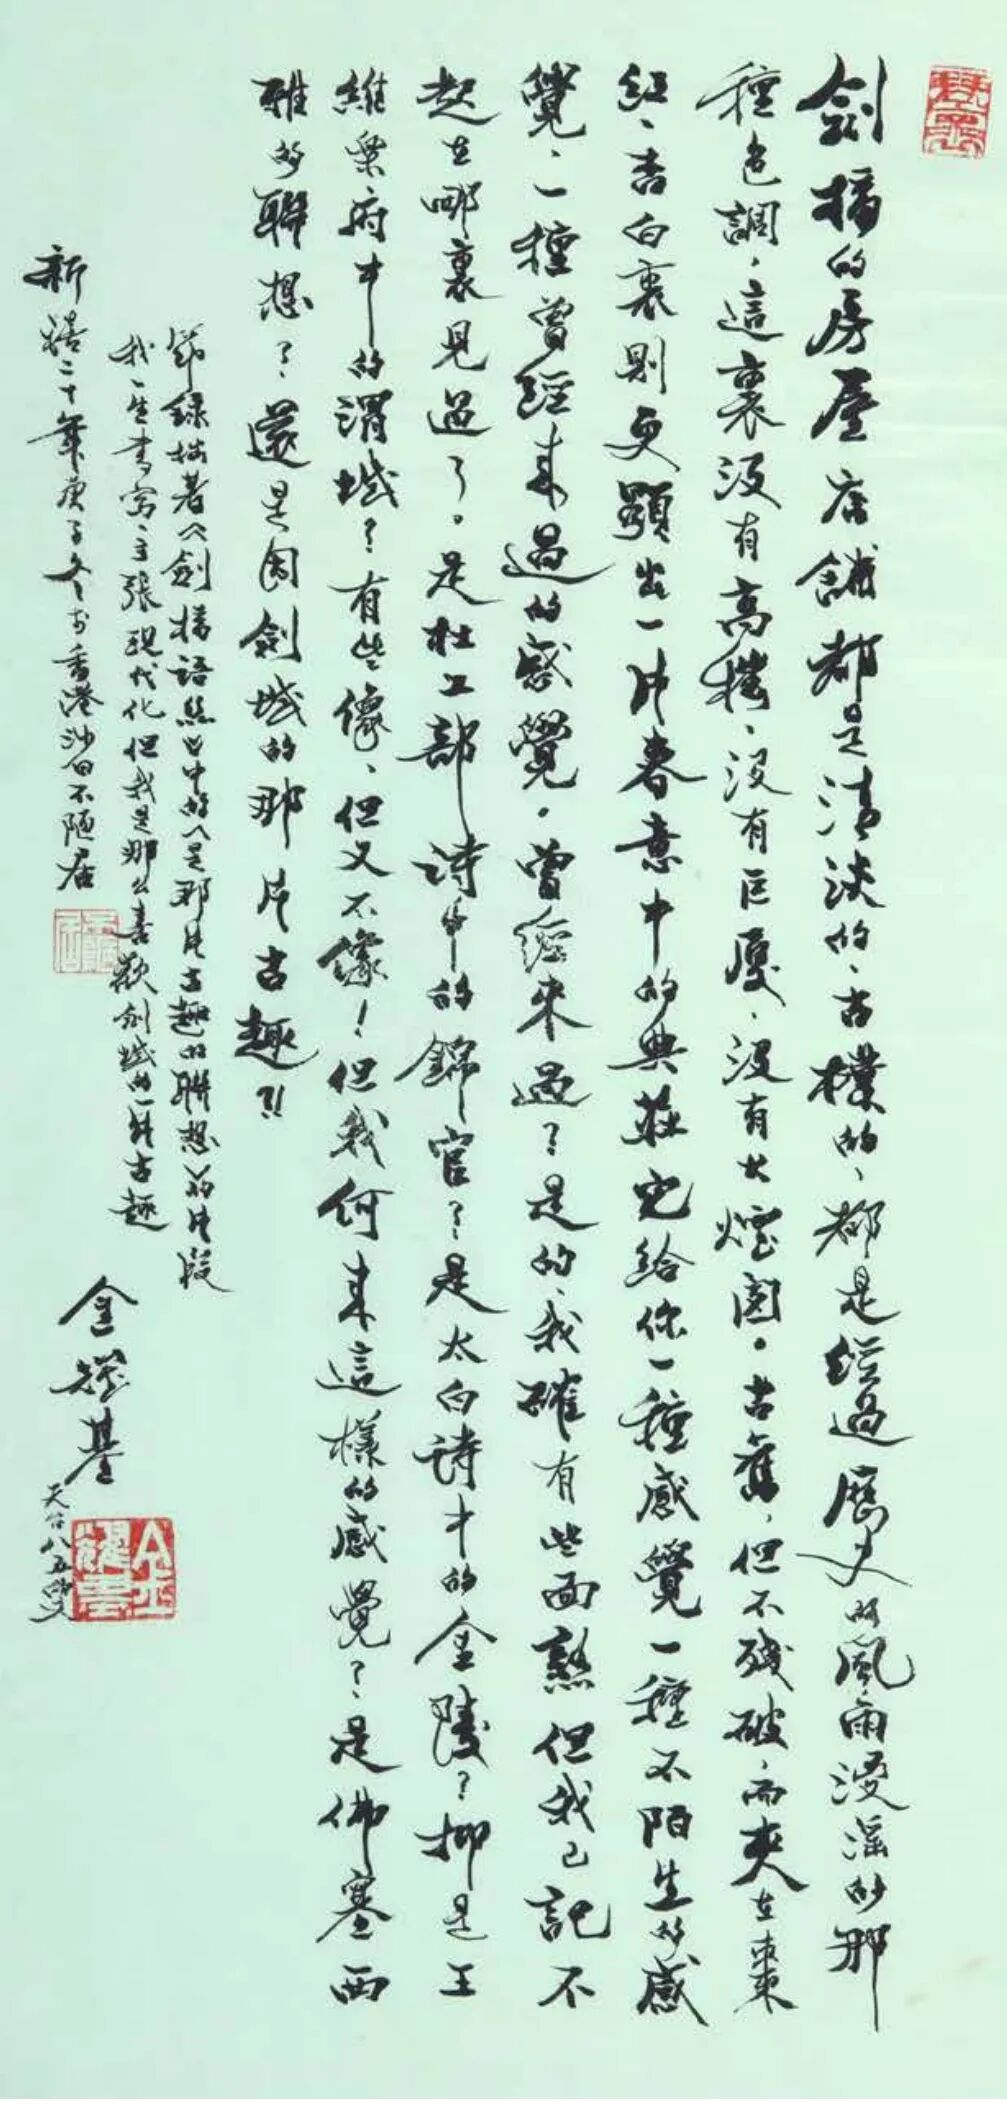 劍橋的房屋店鋪都是清淡的、古樸的、都是經過歷史的風雨浸淫的那
種色調，這裏沒有高樓、沒有巨廈、沒有大煙囪。古舊，但不殘破，而夾在棗
紅、杏白裏則更顯出一片春意中的典莊它給你一種感覺一種不陌生的感
覺、一種曾經來過的感覺。曾經來過？是的、我確有些面熟但我已記不
起在哪裏見過了。是杜工部詩中的錦官？是太白詩中的金陵？抑是王
維樂府中的渭城？有些像、但又不像！但我何來這樣的感覺？是佛塞西
雅的聯想？還是因劍城的那片古趣？！
節錄拙著《劍橋語絲》中的〈是那片古趣的聯想〉的片段
我一生書寫、主張現代化但我是那么喜歡劍城的一片古趣
新禧二十年庚子冬於香港沙田不陋居
金耀基
天台八五叟
金耀基